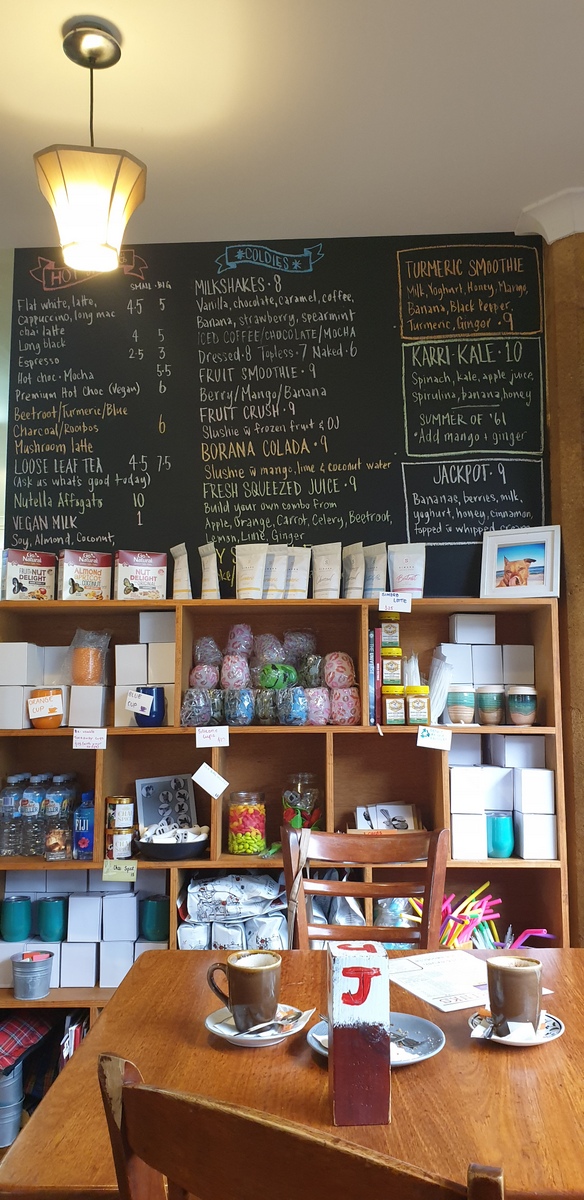 HOT
SMALL · BIG
Flat white, latte, 4·5 5
cappuccino, long mac
chai latte
Long black 4 5
Espresso 2·5 3
Hot choc · Mocha 5·5
Premium Hot Choc (Vegan) 6
Beetroot/Turmeric/Blue
Charcoal/Rooibos 6
Mushroom latte
LOOSE LEAF TEA 4·5 7·5
(Ask us what's good today)
Nutella Affogato 10
VEGAN MILK 1
Soy, Almond, Coconut,
*COLDIES*
MILKSHAKES · 8
Vanilla, chocolate, caramel, coffee,
Banana, strawberry, spearmint
ICED COFFEE/CHOCOLATE/MOCHA
Dressed · 8 Topless · 7 Naked · 6
FRUIT SMOOTHIE · 9
Berry/Mango/Banana
FRUIT CRUSH · 9
Slushie w frozen fruit & OJ
BORANA COLADA · 9
Slushie w mango, lime & coconut water
FRESH SQUEEZED JUICE · 9
Build your own combo from
Apple, Orange, Carrot, Celery, Beetroot,
Lemon, Lime, Ginger
TURMERIC SMOOTHIE
Milk, Yoghurt, Honey, Mango,
Banana, Black Pepper,
Turmeric, Ginger · 9
KARRI KALE · 10
Spinach, kale, apple juice,
spirulina, banana, honey
SUMMER OF '61
*Add mango + ginger
JACKPOT · 9
Bananas, berries, milk,
yoghurt, honey, cinnamon,
topped w whipped cream
Natural
NUT
DELIGHT
Natural
ALMOND
APRICOT
Natural
NUT
DELIGHT
LATTE
ORANGE
CUP
BLUE
CUP
FIJI
J
J